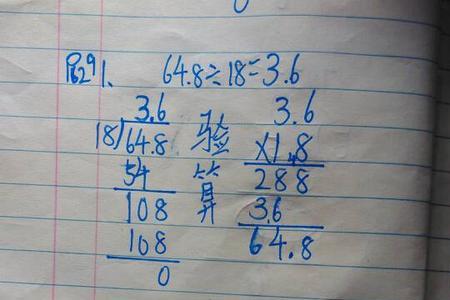 1. 64.8÷18=3.6
3.6
18)64.8
54
108
108
0
验算
3.6
×1.8
288
3.6
64.8